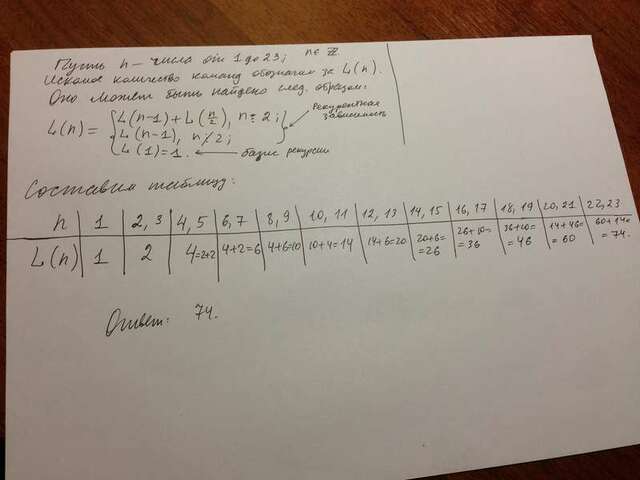 Пусть n – числа от 1 до 23; n ∈ ℤ.
Искомое количество команд обозначим за L(n).
Оно может быть найдено след. образом:
L(n) = { L(n-1) + L(n/2), n ⋮ 2; } Рекурентная зависимость
L(n-1), n ⋮̸ 2;
L(1)=1. ← базис рекурсии
Составим таблицу:
n | 1 | 2, 3 | 4, 5 | 6, 7 | 8, 9 | 10, 11 | 12, 13 | 14, 15 | 16, 17 | 18, 19 | 20, 21 | 22, 23
L(n) | 1 | 2 | 4=2+2 | 4+2=6 | 4+6=10 | 10+4=14 | 14+6=20 | 20+6= =26 | 26+10= =36 | 36+10= =46 | 14+46= =60 | 60+14= =74.
Ответ: 74.